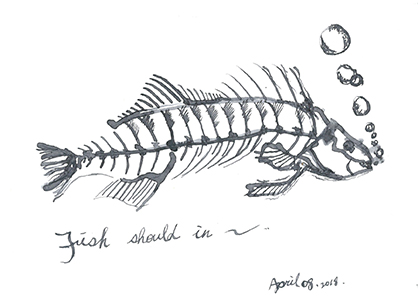 Fish should in ~.
April 08. 2018.